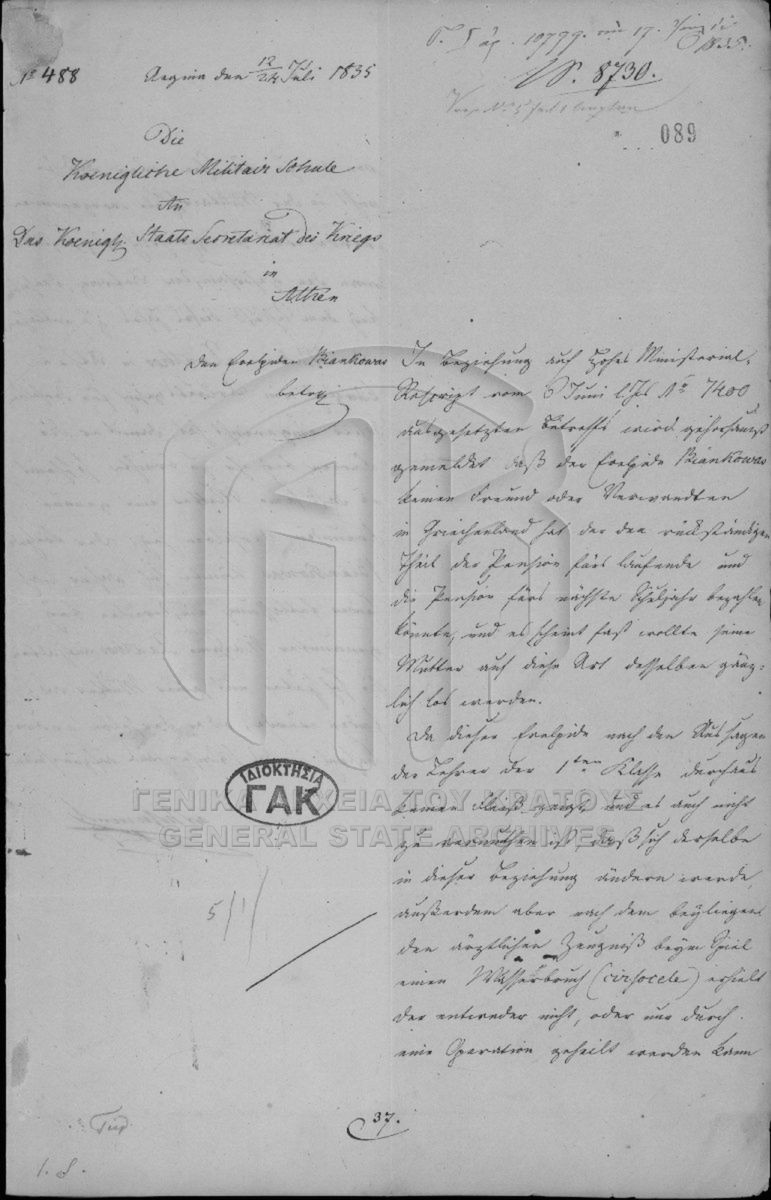 No 488 Aegina den 12/24 Juli 1835
10799 17
1835
8730.
089
Die
Koenigliche Militair Schule
An
Das Koenigl. Staats Secretariat des Kriegs
in
Athen
Den Evelpiden Biankowas
betrf
In Beziehung auf hohes Ministerial-
Rescript vom 6 Juni l. Js No 7400
ausgesetzten Betreffs wird gehorsamst
gemeldet daß der Evelpide Biankowas
keinen Freund oder Verwandten
in Griechenland hat der den rückständigen
Theil der Pension fürs laufende und
die Pension fürs nächste Schuljahr bezahlen
könnte, und es scheint fast wollte seine
Mutter auf diese Art desselben gänz-
lich los werden.
Da dieser Evelpide nach den Aussagen
der Lehrer der 1ten Klasse durchaus
keinen Fleiß zeigt, und es auch nicht
zu vermuthen ist, daß sich derselbe
in dieser Beziehung ändern werde,
außerdem aber nach dem beyliegen
den ärztlichen Zeugniß beym Spiel
einen Wasserbruch (cirsocele) erhielt
der entweder nicht, oder nur durch
eine Operation geheilt werden kann
ΙΔΙΟΚΤΗΣΙΑ
ΓΑΚ
ΓΕΝΙΚΑ ΑΡΧΕΙΑ ΤΟΥ ΚΡΑΤΟΥΣ
GENERAL STATE ARCHIVES
5/1/
37.